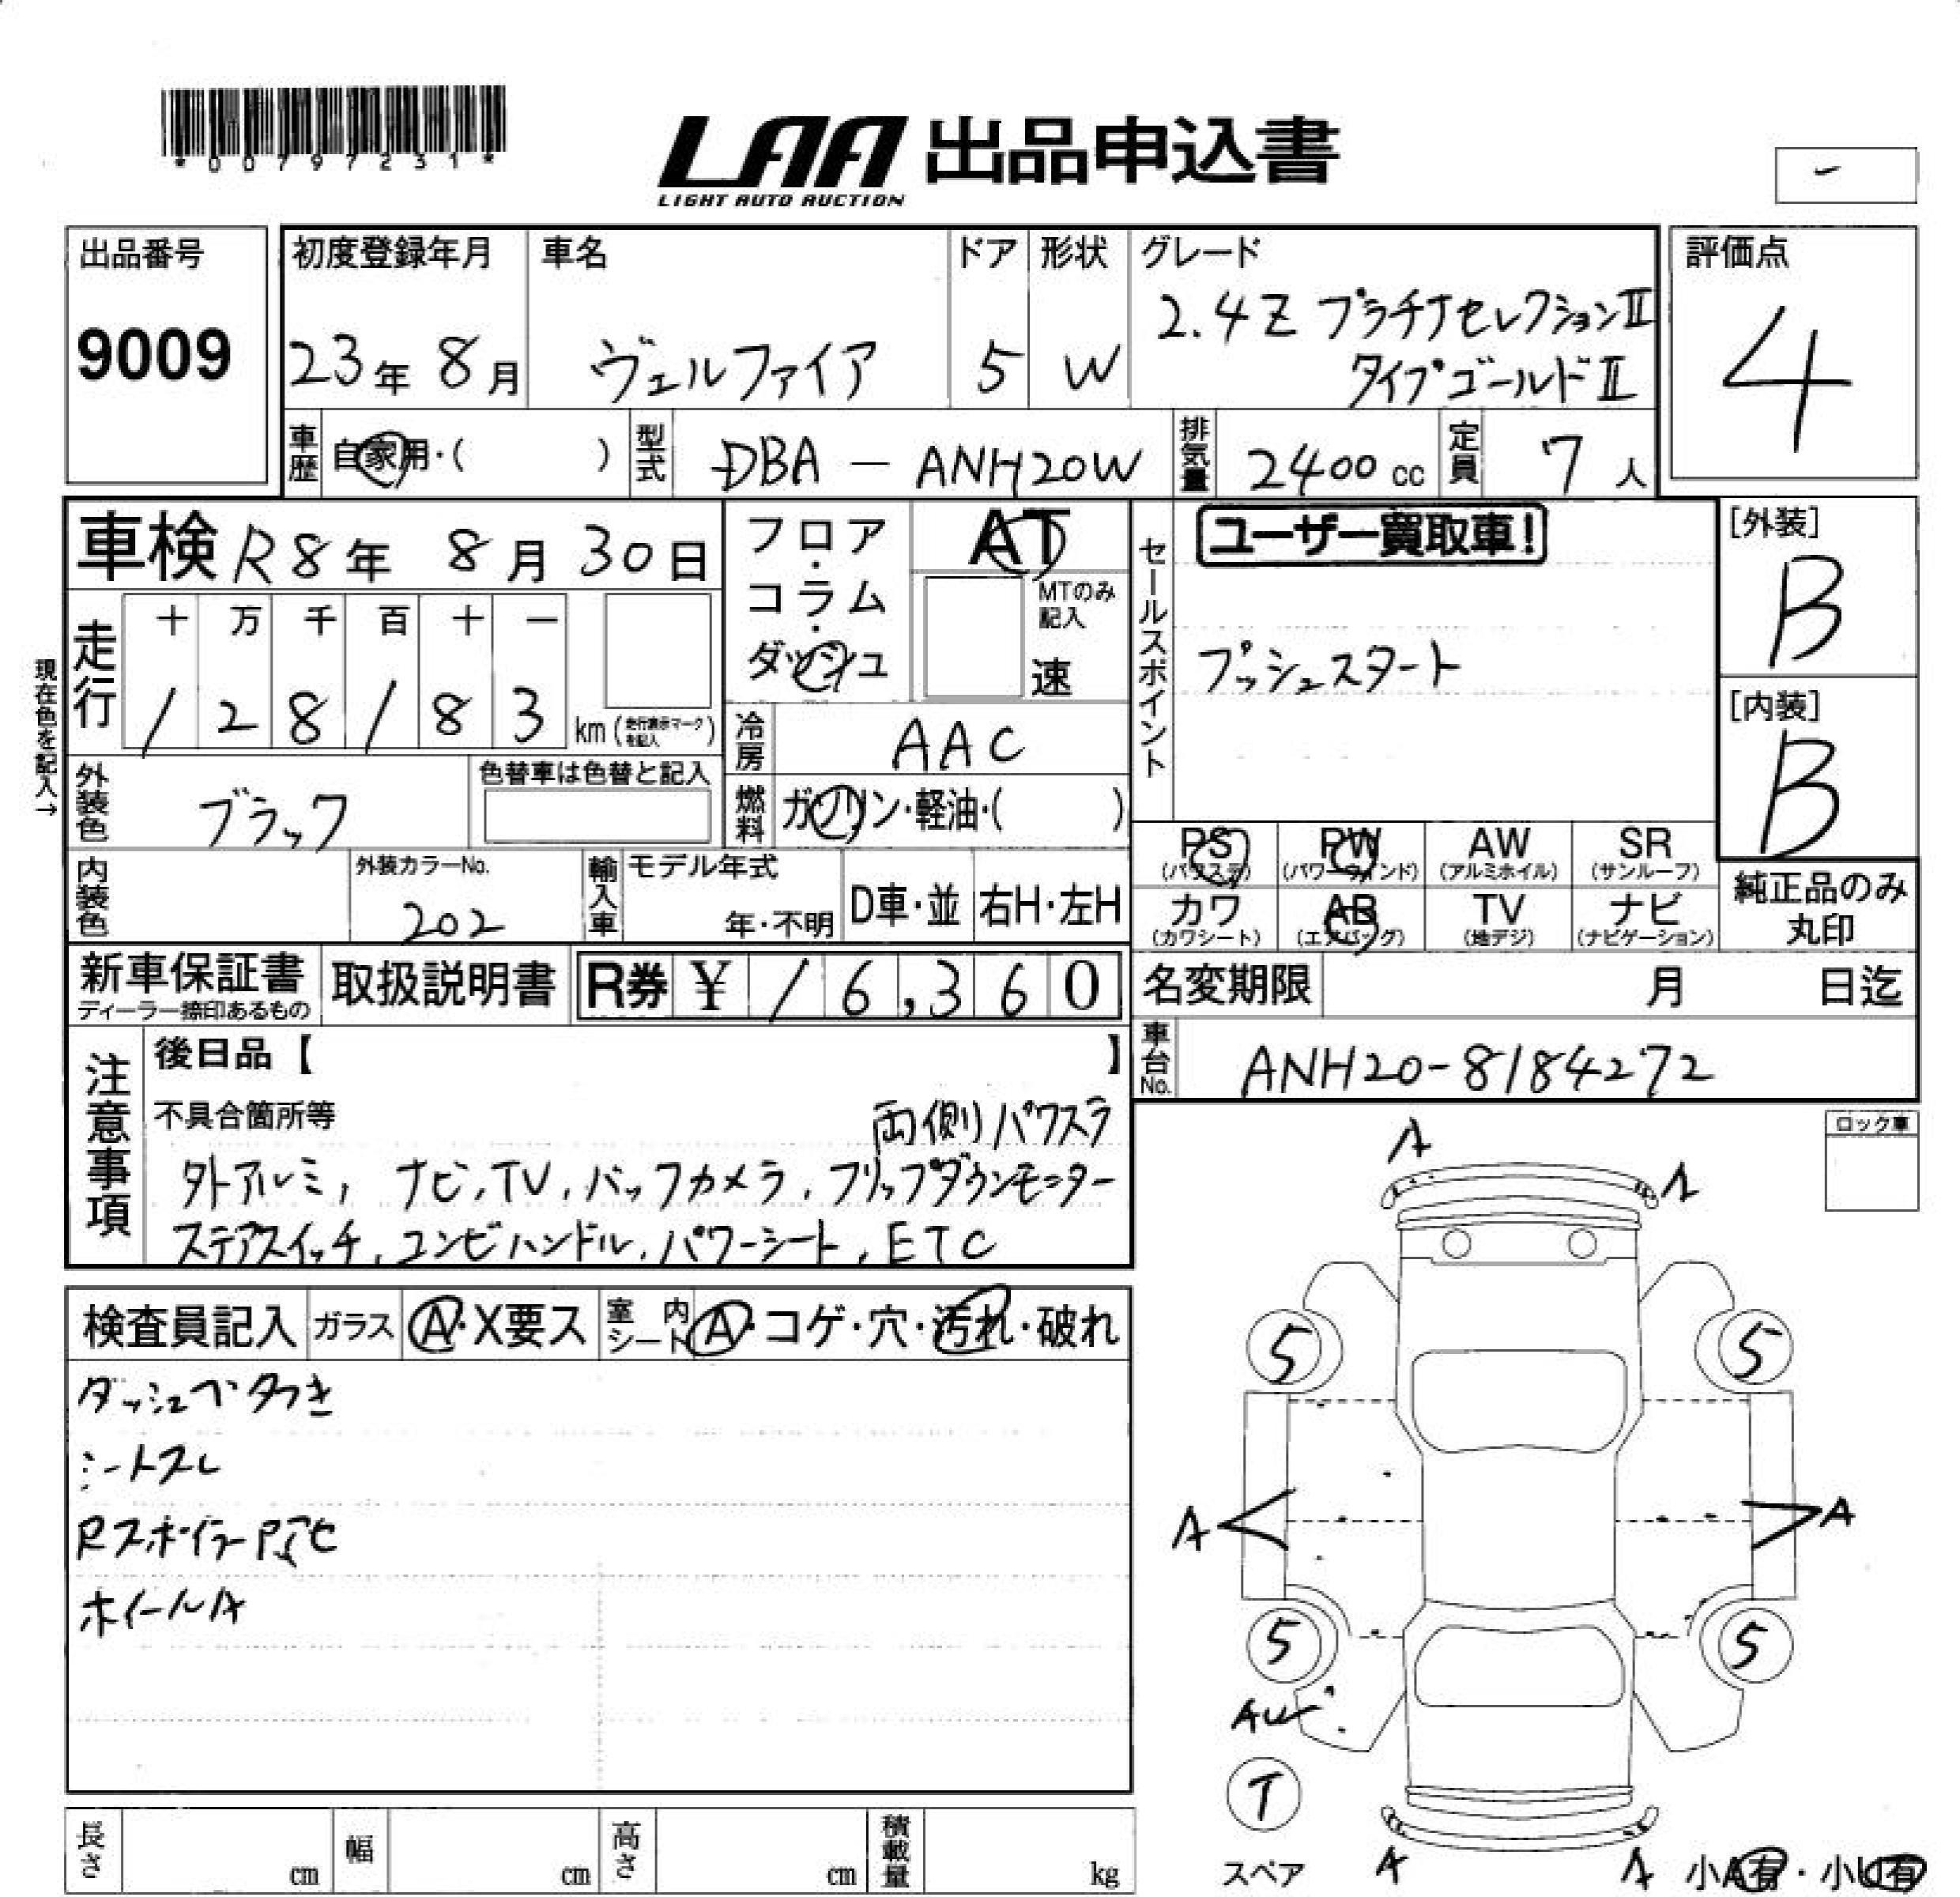 *00797231*
LAA 出品申込書
LIGHT AUTO AUCTION
出品番号
9009
初度登録年月
23年 8月
車名
ヴェルファイア
ドア
5
形状
W
グレード
2.4Z プラチナセレクションⅡ
タイプゴールドⅡ
評価点
4
車歴
自家用・( )
型式
DBA-ANH20W
排気量
2400cc
定員
7人
車検 R8年 8月 30日
現在色を記入→
走行
十 万 千 百 十 一
1 2 8 1 8 3 km (走行表示マークを記入)
フロア・コラム・ダッシュ
AT
MTのみ記入
速
冷房
AAC
燃料
ガソリン・軽油・( )
外装色
ブラック
色替車は色替と記入
内装色
外装カラーNo.
202
輸入車
モデル年式
年・不明
D車・並
右H・左H
セールスポイント
ユーザー買取車!
プッシュスタート
[外装]
B
[内装]
B
PS (パワステ)
PW (パワーウインド)
AW (アルミホイル)
SR (サンルーフ)
カワ (カワシート)
AB (エアバッグ)
TV (地デジ)
ナビ (ナビゲーション)
純正品のみ
丸印
新車保証書
ディーラー捺印あるもの
取扱説明書
R券 ¥ 16,360
名変期限 月 日迄
車台No.
ANH20-8184272
注意事項
後日品【 】
不具合箇所等
両側パワスラ
外アルミ, ナビ, TV, バックカメラ, フリップダウンモニター
ステアスイッチ, コンビハンドル, パワーシート, ETC
ロック車
検査員記入
ガラス
A・X要ス
室内シート
A・コゲ・穴・汚れ・破れ
ダッシュベタつき
シートスレ
Rスポイラー
ホイールA
A
A
5
5
A
A
5
5
AU
T
スペア
A
A
小A有・小U有
長さ cm
幅 cm
高さ cm
積載量 kg